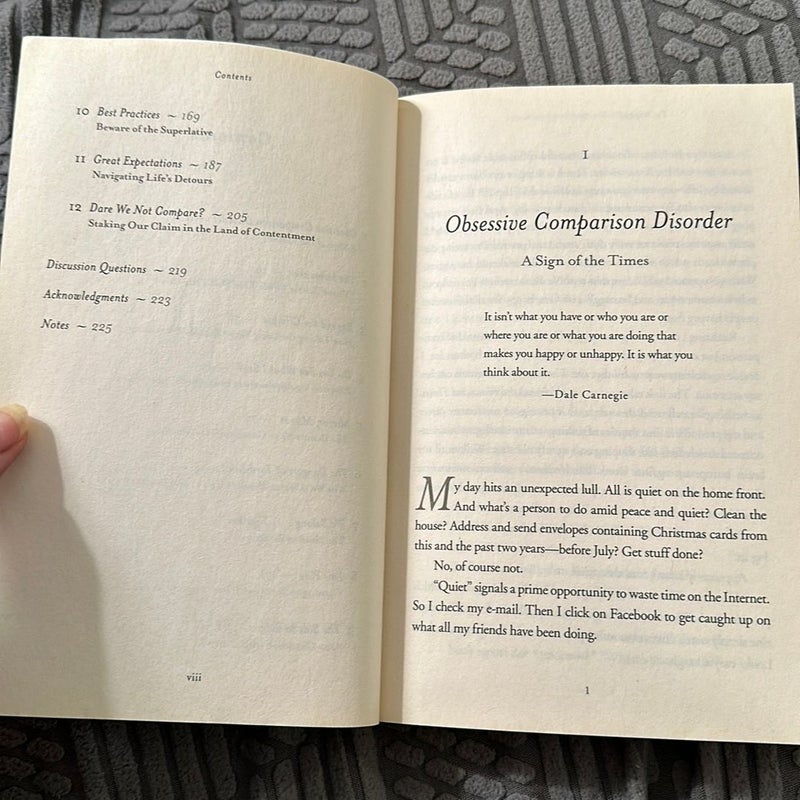 Contents
10 Best Practices ~ 169
Beware of the Superlative
11 Great Expectations ~ 187
Navigating Life's Detours
12 Dare We Not Compare? ~ 205
Staking Our Claim in the Land of Contentment
Discussion Questions ~ 219
Acknowledgments ~ 223
Notes ~ 225
viii
1
Obsessive Comparison Disorder
A Sign of the Times
It isn't what you have or who you are or
where you are or what you are doing that
makes you happy or unhappy. It is what you
think about it.
—Dale Carnegie
My day hits an unexpected lull. All is quiet on the home front.
And what's a person to do amid peace and quiet? Clean the
house? Address and send envelopes containing Christmas cards from
this and the past two years—before July? Get stuff done?
No, of course not.
"Quiet" signals a prime opportunity to waste time on the Internet.
So I check my e-mail. Then I click on Facebook to get caught up on
what all my friends have been doing.
1